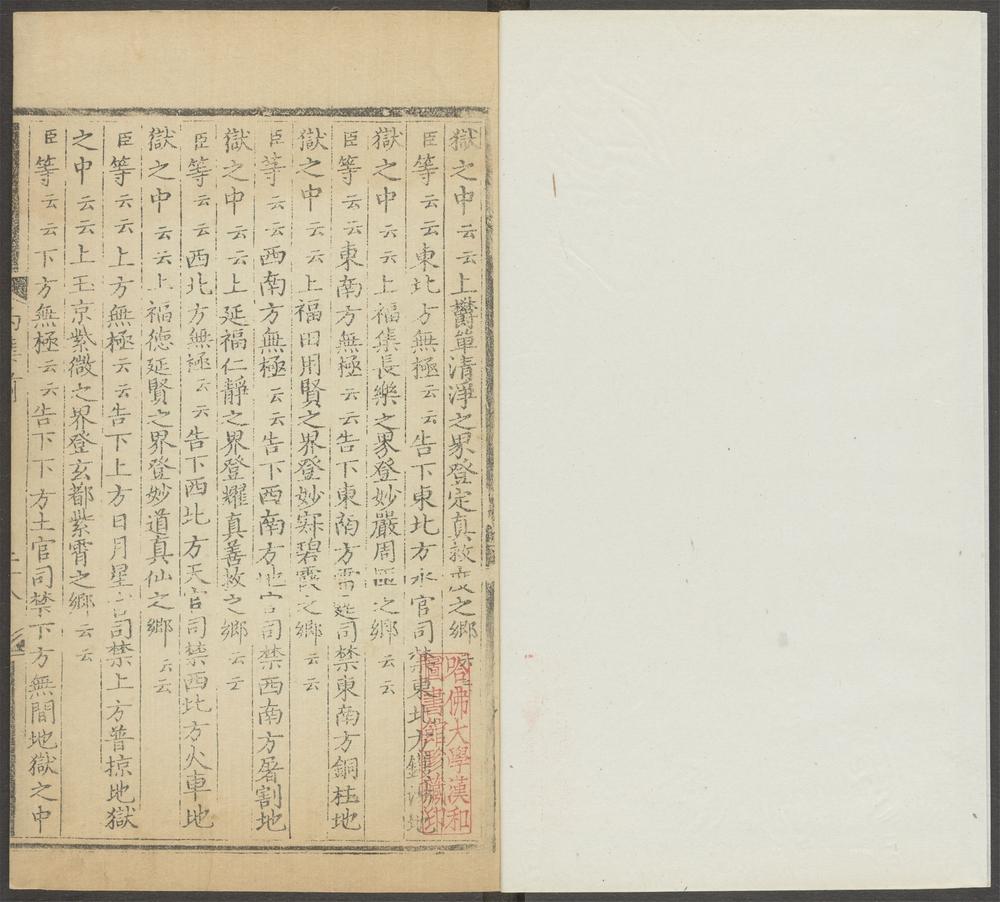 獄之中云云上欝單清淨之界登定真敎之鄉云
臣等云云東北方無極云云告下東北方水官司禁東北方鑊湯地
獄之中云云上福集長樂之界登妙嚴周匝之鄉云云
臣等云云東南方無極云云告下東南方雷霆司禁東南方銅柱地
獄之中云云上福田用賢之界登妙寂碧霄之鄉云云
臣等云云西南方無極云云告下西南方地官司禁西南方屠割地
獄之中云云上延福仁靜之界登耀真善救之鄉云云
臣等云云西北方無極云云告下西北方天官司禁西北方火車地
獄之中云云上福德延賢之界登妙道真仙之鄉云云
臣等云云上方無極云云告下上方日月星宮司禁上方普掠地獄
之中云云上玉京紫微之界登玄都紫霄之鄉云云
臣等云云下方無極云云告下下方土官司禁下方無間地獄之中
哈佛大學漢和
圖書館珍藏印